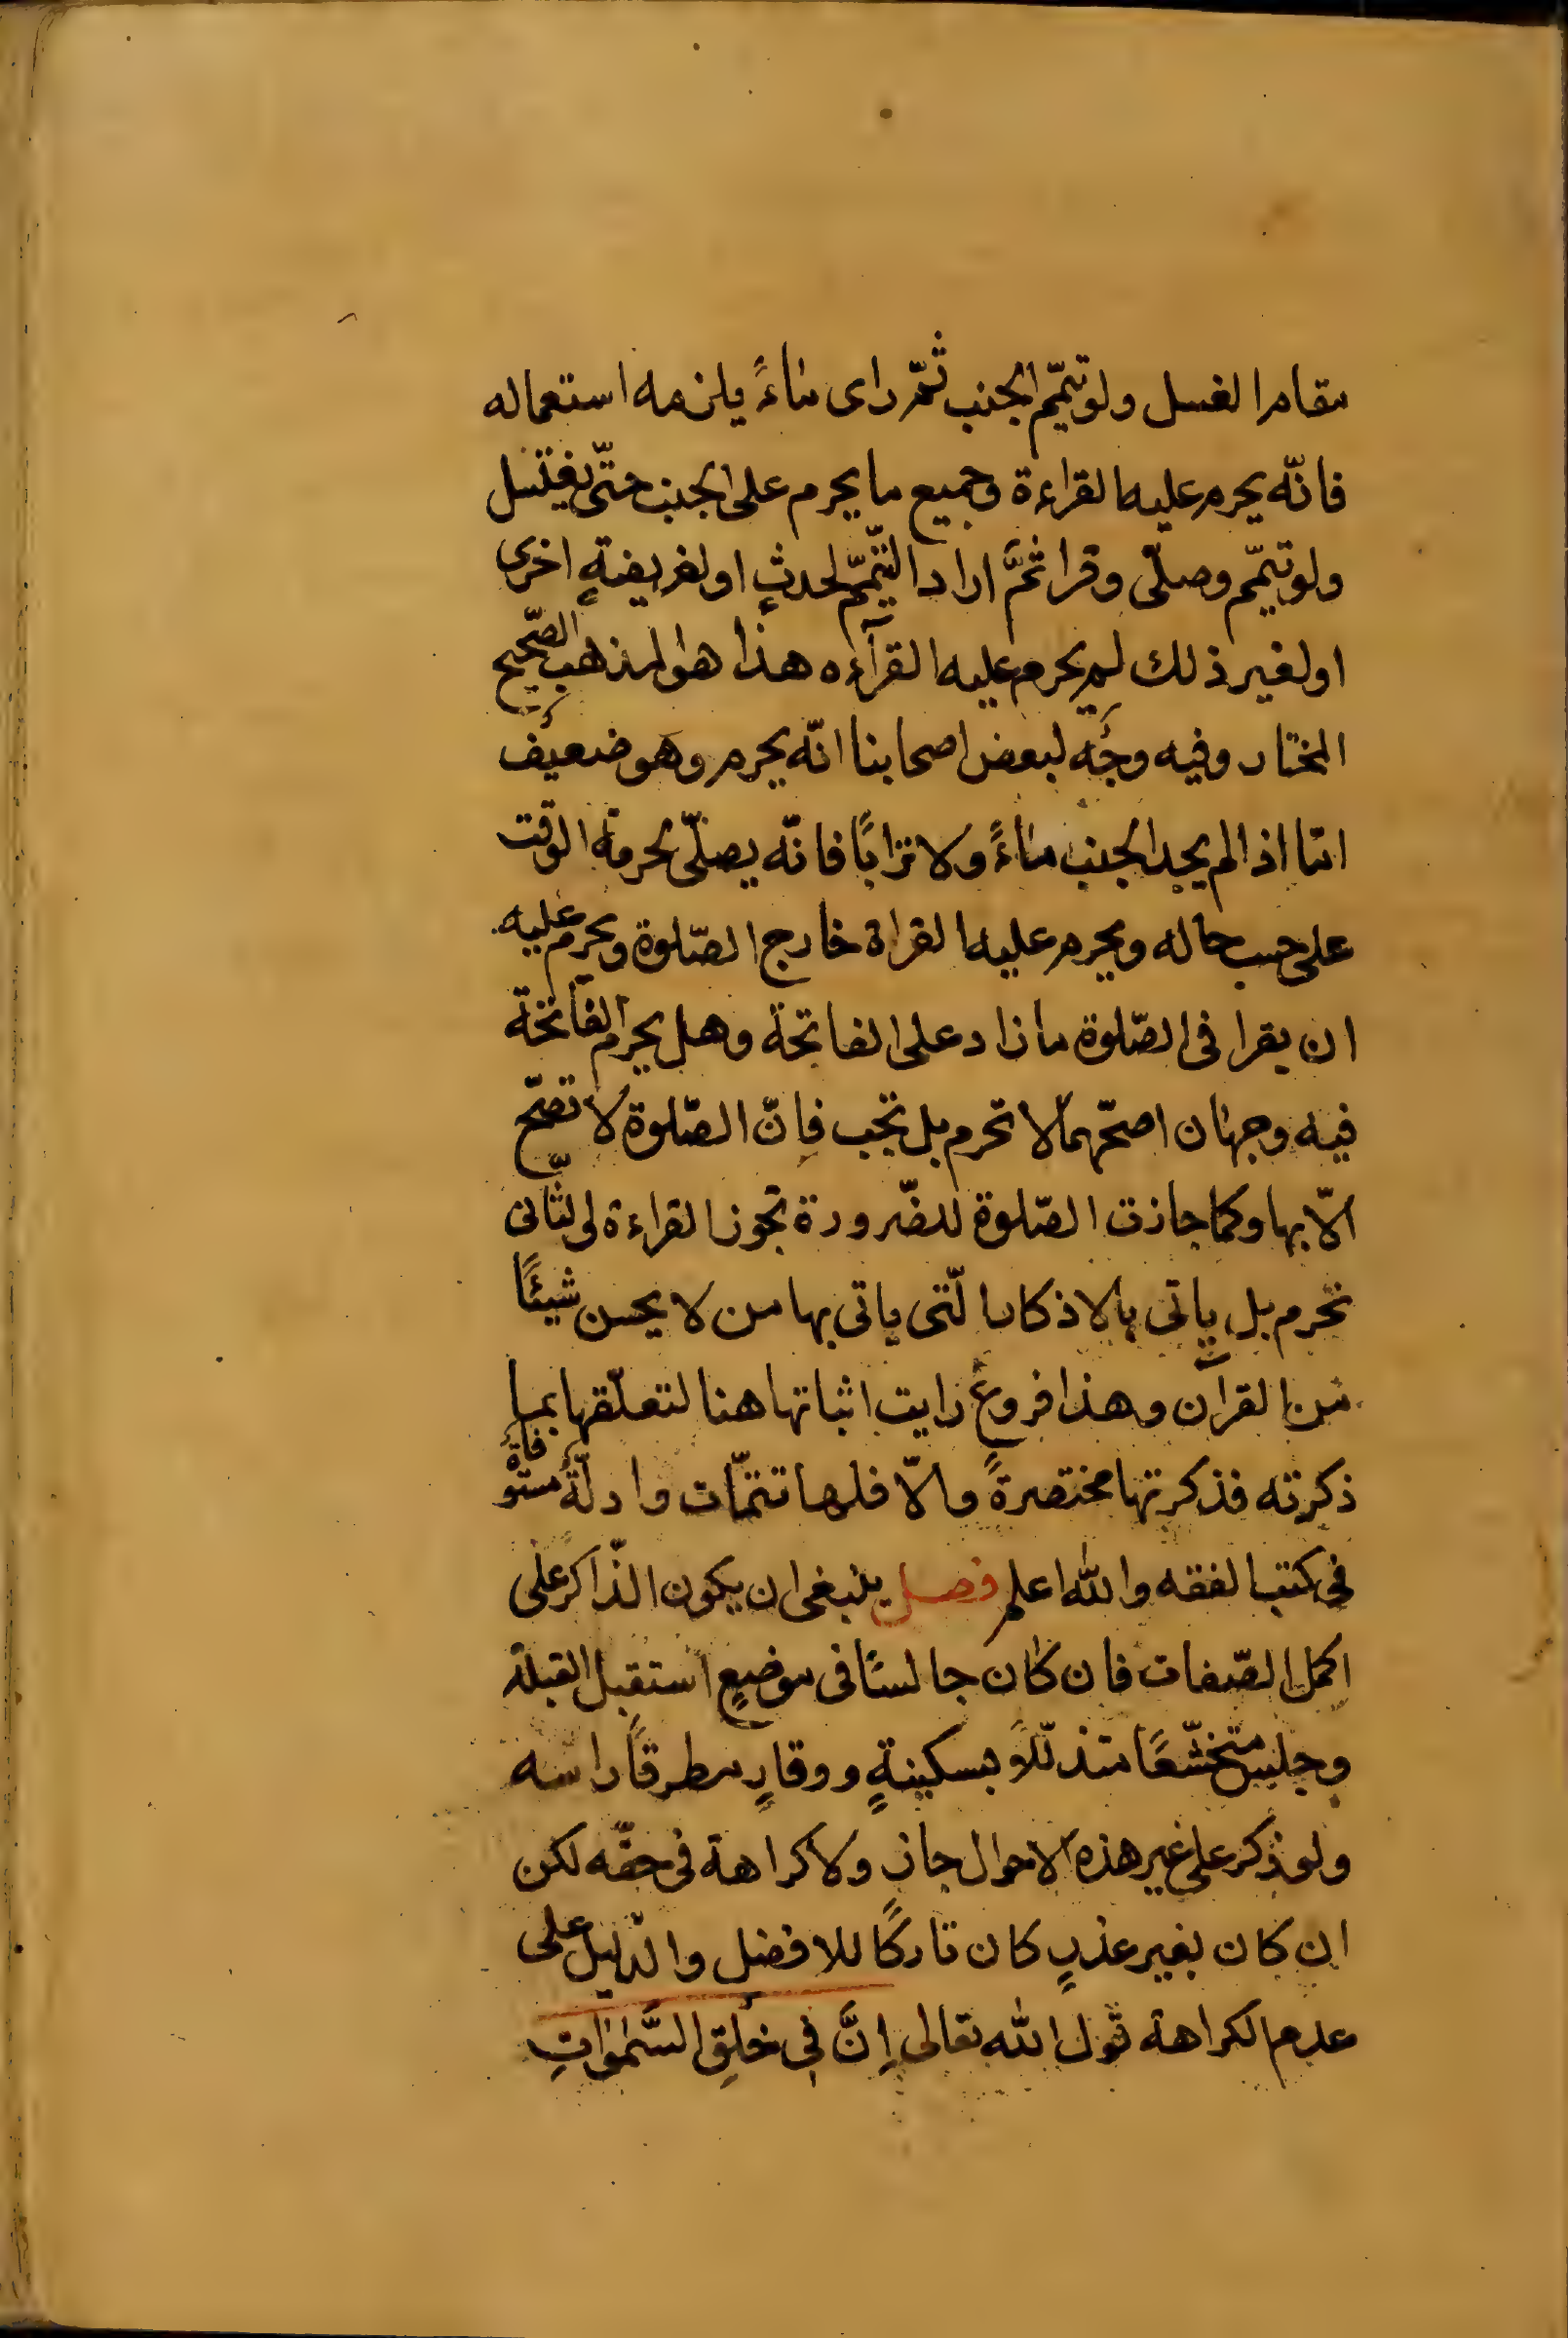 مقام الغسل ولو تيمّم الجنب ثمّ راى ماءً يلزمه استعماله
فانّه يحرم عليه القراءة وجميع ما يحرم على الجنب حتّى يغتسل
ولو تيمّم وصلّى وقرا ثمَّ اراد التّيمّم لحدثٍ او لفريضةٍ اخرى
او لغير ذلك لم يحرم عليه القرآءه هذا هو المذهب الصّحيح
المختار وفيه وجُه لبعض اصحابنا انّه يحرم وهو ضعيف
امّا اذا لم يجد الجنب ماءً ولا ترابًا فانّه يصلّى لحرمة الوقت
على حسب حاله ويحرم عليه القراة خارج الصّلوة ويحرم عليه
ان يقرا فى الصّلوة ما زاد على الفاتحة وهل يحرم الفاتحة
فيه وجهان اصحّهما لا تحرم بل تجب فاِنّ الصّلوة لا تصّح
الّا بها وكما جازت الصّلوة للضّرورة تجوز القراءة والثّانى
تحرم بل ياتى بالاذكار الّتى ياتى بها من لا يحسن شيئًا
من القرآن وهذا فروعٌ رايت اثباتها هنا لتعلّقها بما
ذكرته فذكرتها مختصرةً والّا فلها تتمّات وادلّةٌ مستوفاةٌ
فى كتب الفقه والله اعلم فصل ينبغى ان يكون الذّاكر على
اكمل الصّفات فان كان جالسًا فى موضعٍ استقبل القبلة
وجلس متخشّعًا متذلّلًا بسكينةٍ ووقارٍ مطرقًا راسه
ولو ذكر على غير هذه الاحوال جاز ولا كراهة فى حقّه لكن
ان كان بغير عذرٍ كان تاركًا للافضل والدّليل على
عدم الكراهة قول الله تعالى اِنَّ فِى خلقِ السَّمٰوٰاتِ